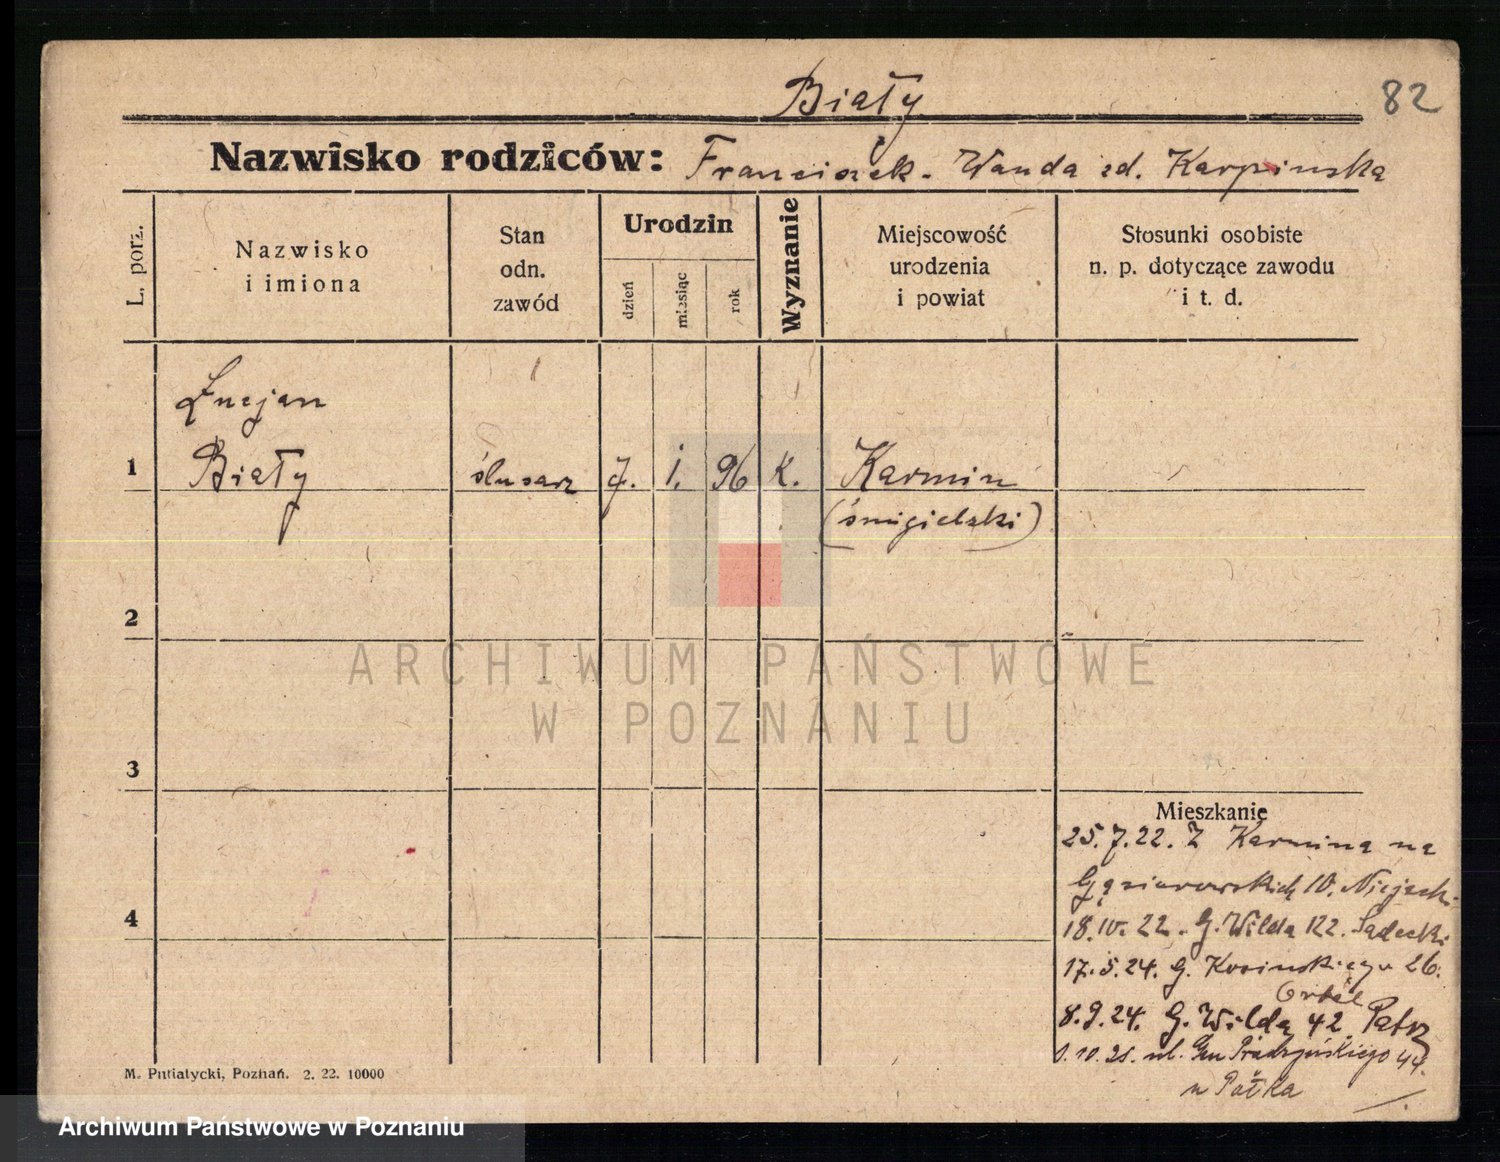 Biały
82
Nazwisko rodziców: Franciszek - Wanda zd. Karpinska
L. porz.
Nazwisko
i imiona
Stan
odn.
zawód
Urodzin
dzień
miesiąc
rok
Wyznanie
Miejscowość
urodzenia
i powiat
Stosunki osobiste
n. p. dotyczące zawodu
i t. d.
Łucjan
1 Biały ślusarz 7. 1. 96 k. Karmin
(śmigielski)
2
3
4
Mieszkanie
25.7.22. Z Karmina na
Gąsiorowskich 10.
18.10.22. G. Wilda 122. Sadecki
17.5.24. G. Kosinskiego 26.
8.9.24. G. Wilda 42
1.10.25. ul. Gen Prądzyńskiego 44.
M. Putiatycki, Poznań. 2. 22. 10000
ARCHIWUM PAŃSTWOWE
W POZNANIU
Archiwum Państwowe w Poznaniu